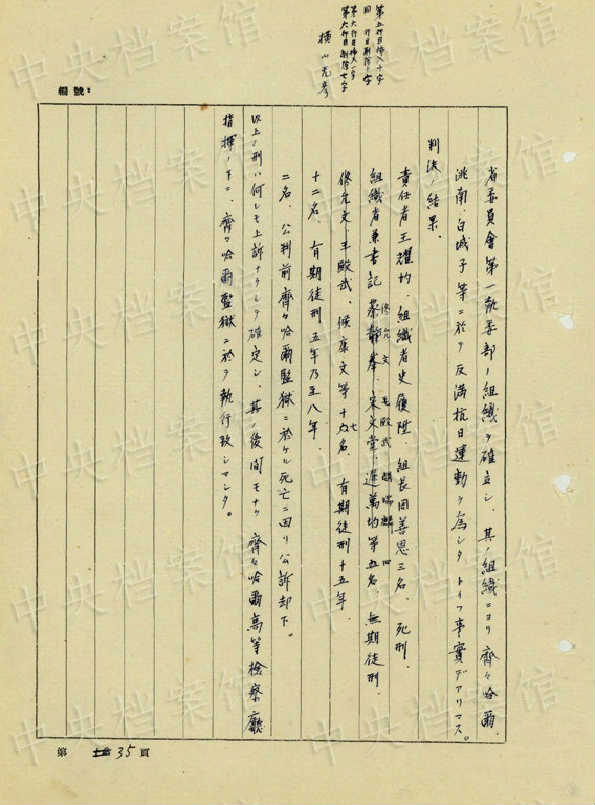 第五行目挿入十字
同 行目削除一字
第六行目挿入一字
第六行目削除七字
横山光彦
編號：
省委員會第一執委部ノ組織ヲ確立シ、其ノ組織ニヨリ齊々哈爾、
洮南、白城子等ニ於テ反満抗日運動ヲ為シタトイフ事實デアリマス。
判決ノ結果、
責任者王耀均、組織者史履陞 組長周善恩三名、死刑、
組織者兼書記
宋文堂、
萬均等五名、無期徒刑、
修允文 毛殿武 麟 四
修允文、王殿武、候康文等十七名、有期徒刑十五年、
十二名、有期徒刑五年乃至八年、
二名、公判前齊々哈爾監獄ニ於ケル死亡ニ因リ公訴却下。
以上ノ刑ハ何レモ上訴ナクシテ確定シ、其ノ後間モナク齊々哈爾高等檢察廳
指揮ノ下ニ、齊々哈爾監獄ニ於テ執行致シマシタ。
第 35 頁
中央档案馆